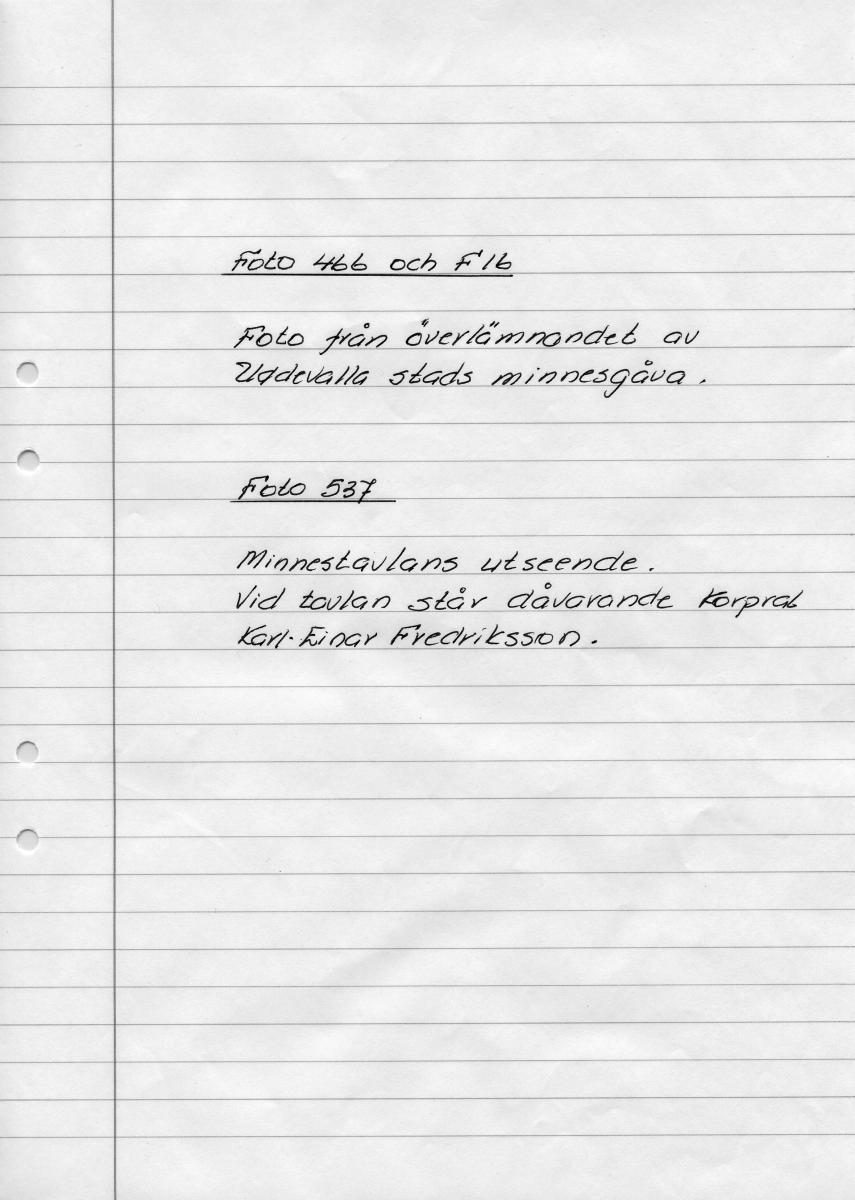 Foto 466 och F16
Foto från överlämnandet av
Uddevalla stads minnesgåva.
Foto 537
Minnestavlans utseende.
Vid tavlan står dåvarande Korpral
Karl-Einar Fredriksson.